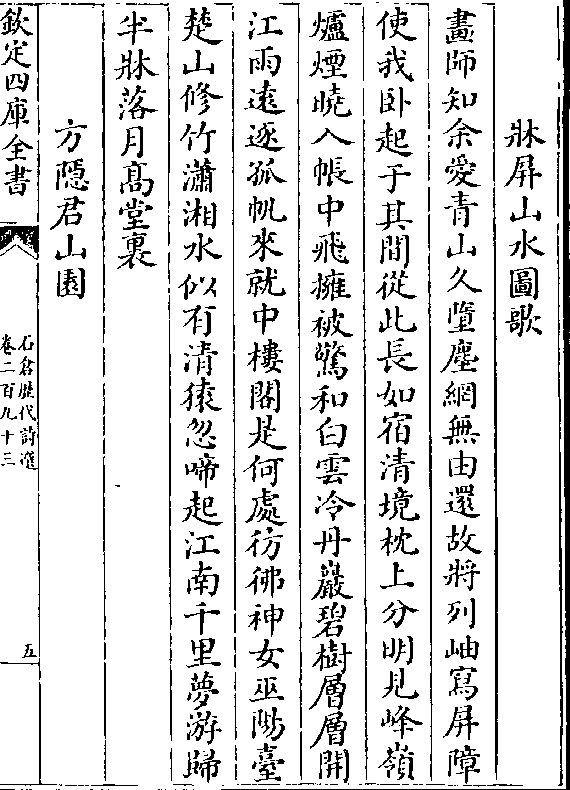 牀屏山水圖歌
畫師知余愛青山久墮塵網無由還故將列岫寫屏障
使我卧起于其間從此長如宿清境枕上分明見峰嶺
爐煙曉入帳中飛擁被驚和白雲冷丹巖碧樹層層開
江雨遠逐孤帆來就中樓閣是何處彷彿神女巫陽臺
楚山修竹瀟湘水似有清猿忽啼起江南千里夢游歸
半牀落月高堂裏
方隱君山園
欽定四庫全書
石倉歷代詩選
卷二百九十三
五